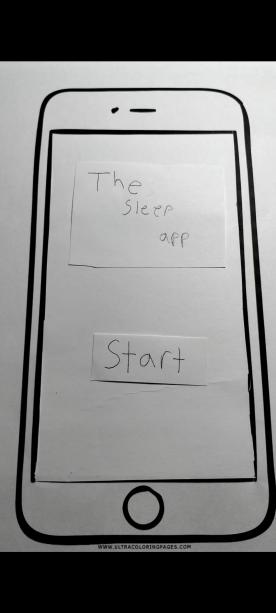 The
Sleep
app
Start
WWW.ULTRACOLORINGPAGES.COM